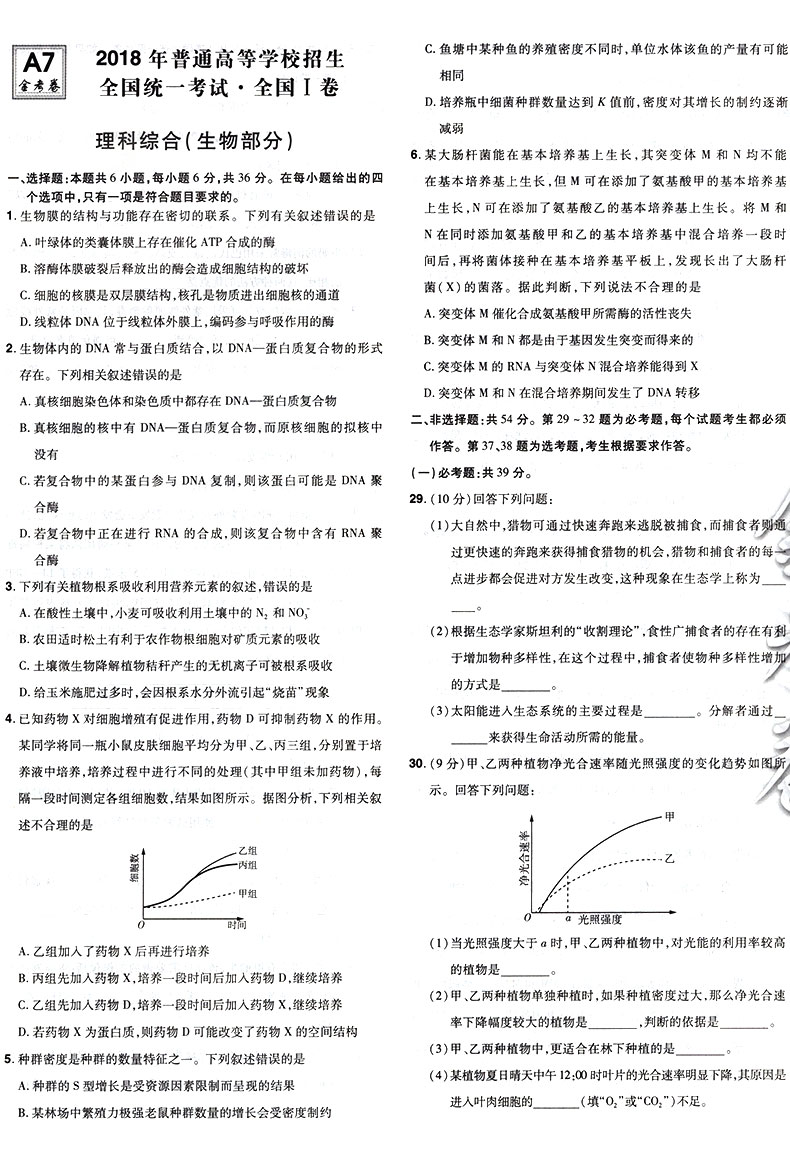 A7
金考卷
2018年普通高等学校招生
全国统一考试·全国Ⅰ卷
理科综合(生物部分)
一、选择题:本题共6小题,每小题6分,共36分。在每小题给出的四
个选项中,只有一项是符合题目要求的。
1.生物膜的结构与功能存在密切的联系。下列有关叙述错误的是
A.叶绿体的类囊体膜上存在催化ATP合成的酶
B.溶酶体膜破裂后释放出的酶会造成细胞结构的破坏
C.细胞的核膜是双层膜结构,核孔是物质进出细胞核的通道
D.线粒体DNA位于线粒体外膜上,编码参与呼吸作用的酶
2.生物体内的DNA常与蛋白质结合,以DNA—蛋白质复合物的形式
存在。下列相关叙述错误的是
A.真核细胞染色体和染色质中都存在DNA—蛋白质复合物
B.真核细胞的核中有DNA—蛋白质复合物,而原核细胞的拟核中
没有
C.若复合物中的某蛋白参与DNA复制,则该蛋白可能是DNA聚
合酶
D.若复合物中正在进行RNA的合成,则该复合物中含有RNA聚
合酶
3.下列有关植物根系吸收利用营养元素的叙述,错误的是
A.在酸性土壤中,小麦可吸收利用土壤中的N₂和NO₃⁻
B.农田适时松土有利于农作物根细胞对矿质元素的吸收
C.土壤微生物降解植物秸秆产生的无机离子可被根系吸收
D.给玉米施肥过多时,会因根系水分外流引起“烧苗”现象
4.已知药物X对细胞增殖有促进作用,药物D可抑制药物X的作用。
某同学将同一瓶小鼠皮肤细胞平均分为甲、乙、丙三组,分别置于培
养液中培养,培养过程中进行不同的处理(其中甲组未加药物),每
隔一段时间测定各组细胞数,结果如图所示。据图分析,下列相关叙
述不合理的是
细胞数
乙组
丙组
甲组
O
时间
A.乙组加入了药物X后再进行培养
B.丙组先加入药物X,培养一段时间后加入药物D,继续培养
C.乙组先加入药物D,培养一段时间后加入药物X,继续培养
D.若药物X为蛋白质,则药物D可能改变了药物X的空间结构
5.种群密度是种群的数量特征之一。下列叙述错误的是
A.种群的S型增长是受资源因素限制而呈现的结果
B.某林场中繁殖力极强老鼠种群数量的增长会受密度制约
C.鱼塘中某种鱼的养殖密度不同时,单位水体该鱼的产量有可能
相同
D.培养瓶中细菌种群数量达到K值前,密度对其增长的制约逐渐
减弱
6.某大肠杆菌能在基本培养基上生长,其突变体M和N均不能
在基本培养基上生长,但M可在添加了氨基酸甲的基本培养基
上生长,N可在添加了氨基酸乙的基本培养基上生长。将M和
N在同时添加氨基酸甲和乙的基本培养基中混合培养一段时
间后,再将菌体接种在基本培养基平板上,发现长出了大肠杆
菌(X)的菌落。据此判断,下列说法不合理的是
A.突变体M催化合成氨基酸甲所需酶的活性丧失
B.突变体M和N都是由于基因发生突变而得来的
C.突变体M的RNA与突变体N混合培养能得到X
D.突变体M和N在混合培养期间发生了DNA转移
二、非选择题:共54分。第29~32题为必考题,每个试题考生都必须
作答。第37、38题为选考题,考生根据要求作答。
(一)必考题:共39分。
29.(10分)回答下列问题:
(1)大自然中,猎物可通过快速奔跑来逃脱被捕食,而捕食者则通
过更快速的奔跑来获得捕食猎物的机会,猎物和捕食者的每一
点进步都会促进对方发生改变,这种现象在生态学上称为____
____。
(2)根据生态学家斯坦利的“收割理论”,食性广捕食者的存在有利
于增加物种多样性,在这个过程中,捕食者使物种多样性增加
的方式是________。
(3)太阳能进入生态系统的主要过程是________。分解者通过__
______来获得生命活动所需的能量。
30.(9分)甲、乙两种植物净光合速率随光照强度的变化趋势如图所
示。回答下列问题:
净光合速率
甲
乙
O
a
光照强度
(1)当光照强度大于a时,甲、乙两种植物中,对光能的利用率较高
的植物是________。
(2)甲、乙两种植物单独种植时,如果种植密度过大,那么净光合速
率下降幅度较大的植物是________,判断的依据是________。
(3)甲、乙两种植物中,更适合在林下种植的是________。
(4)某植物夏日晴天中午12:00时叶片的光合速率明显下降,其原因是
进入叶肉细胞的________(填“O₂”或“CO₂”)不足。
金考卷